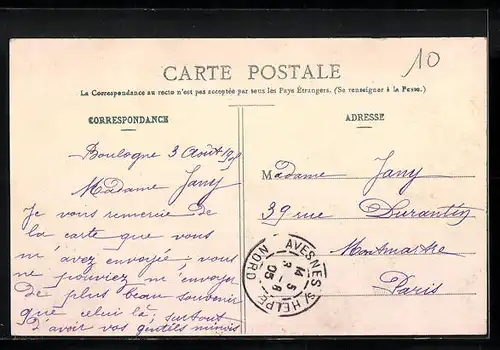 10
CARTE POSTALE
La Correspondance au recto n'est pas acceptée par tous les Pays Étrangers. (Se renseigner à la Poste.)
CORRESPONDANCE
Boulogne 3 Août 19
Madame Jany
Je vous remercie de
la carte que vous
m'avez envoyé; vous
ne pouviez m'envoyer
de plus beau souvenir
que celui là, surtout
d'avoir vos gentils minois
ADRESSE
Madame Jany
39 rue Durantin
Montmartre
Paris
AVESNES S/ HELPE
NORD
5
8
05